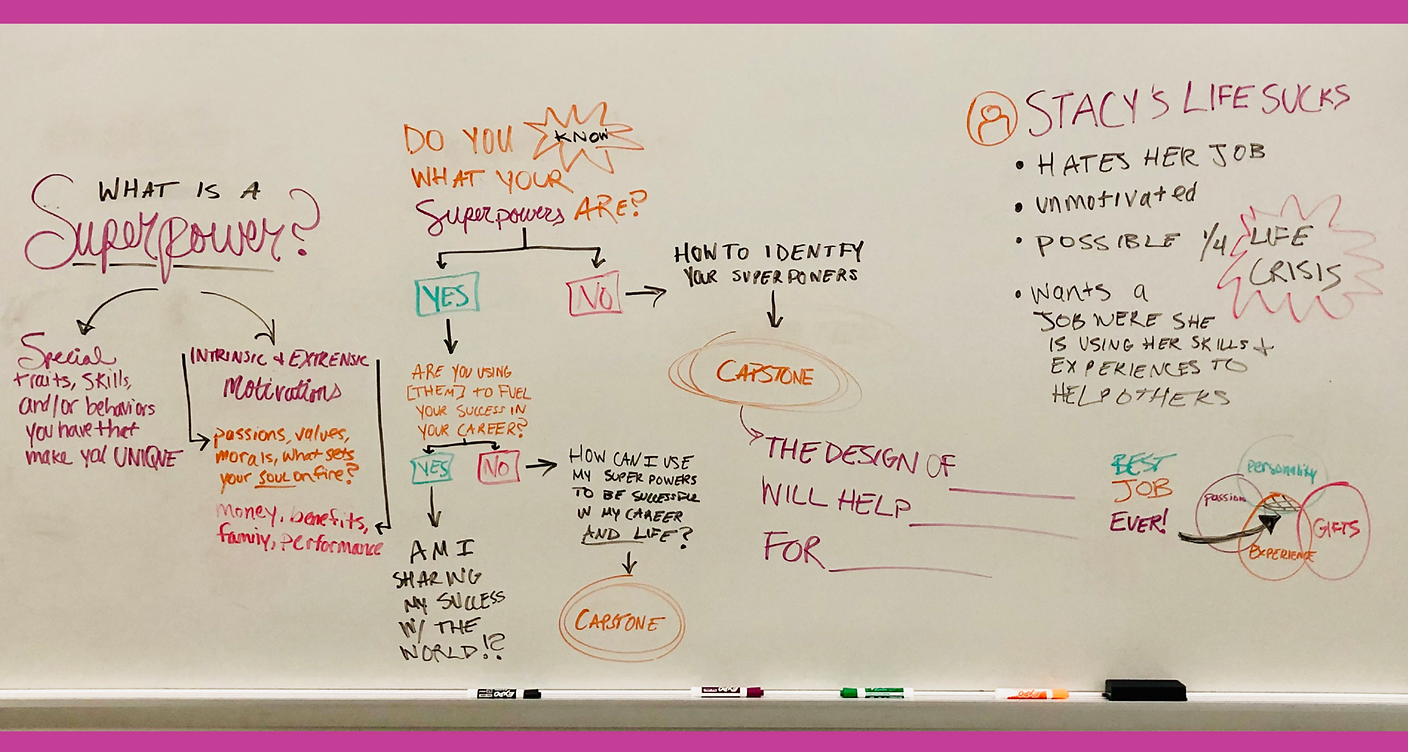 WHAT IS A
Superpower?
Special
traits, skills,
and/or behaviors
you have that
make you UNIQUE
INTRINSIC & EXTRENSIC
Motivations
passions, values,
morals, what sets
your soul on fire?
money, benefits,
family, performance
DO YOU KNOW
WHAT YOUR
Superpowers ARE?
YES
NO
HOW TO IDENTIFY
YOUR SUPERPOWERS
CAPSTONE
ARE YOU USING
[THEM] to FUEL
YOUR SUCCESS IN
YOUR CAREER?
YES
NO
HOW CAN I USE
MY SUPER POWERS
TO BE SUCCESSFUL
IN MY CAREER
AND LIFE?
CAPSTONE
AM I
SHARING
MY SUCCESS
W/ THE
WORLD!?
THE DESIGN OF
WILL HELP
FOR
STACY'S LIFE SUCKS
• HATES HER JOB
• unmotivated
• POSSIBLE 1/4 LIFE
CRISIS
• Wants a
JOB WERE SHE
IS USING HER SKILLS +
EXPERIENCES TO
HELP OTHERS
BEST
JOB
EVER!
personality
passion
GIFTS
EXPERIENCE
EXPO
EXPO